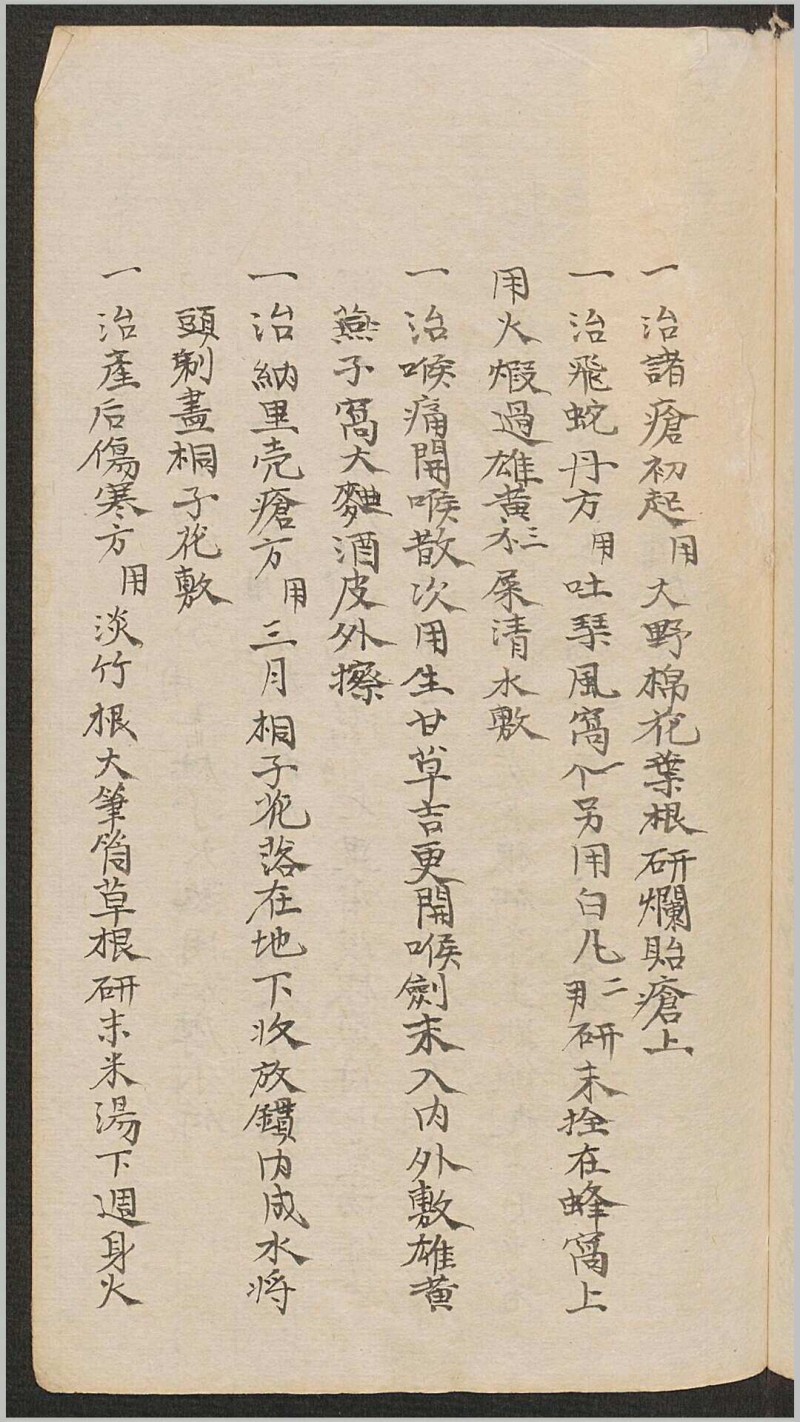 一治諸瘡初起用大野棉花葉根研爛貼瘡上
一治飛蛇丹方用吐琹風窩一个另用白凡二研末拴在蜂窩上
用火煅過雄黃三不屎清水敷
一治喉痛開喉散次用生甘草吉更開喉劍末入內外敷雄黃
燕子窩大麯酒皮外擦
一治納里壳瘡方用三月桐子花落在地下收放鑽內成水将
頭剃盡桐子花敷
一治產后傷寒方用淡竹根大筆筒草根研末米湯下週身火